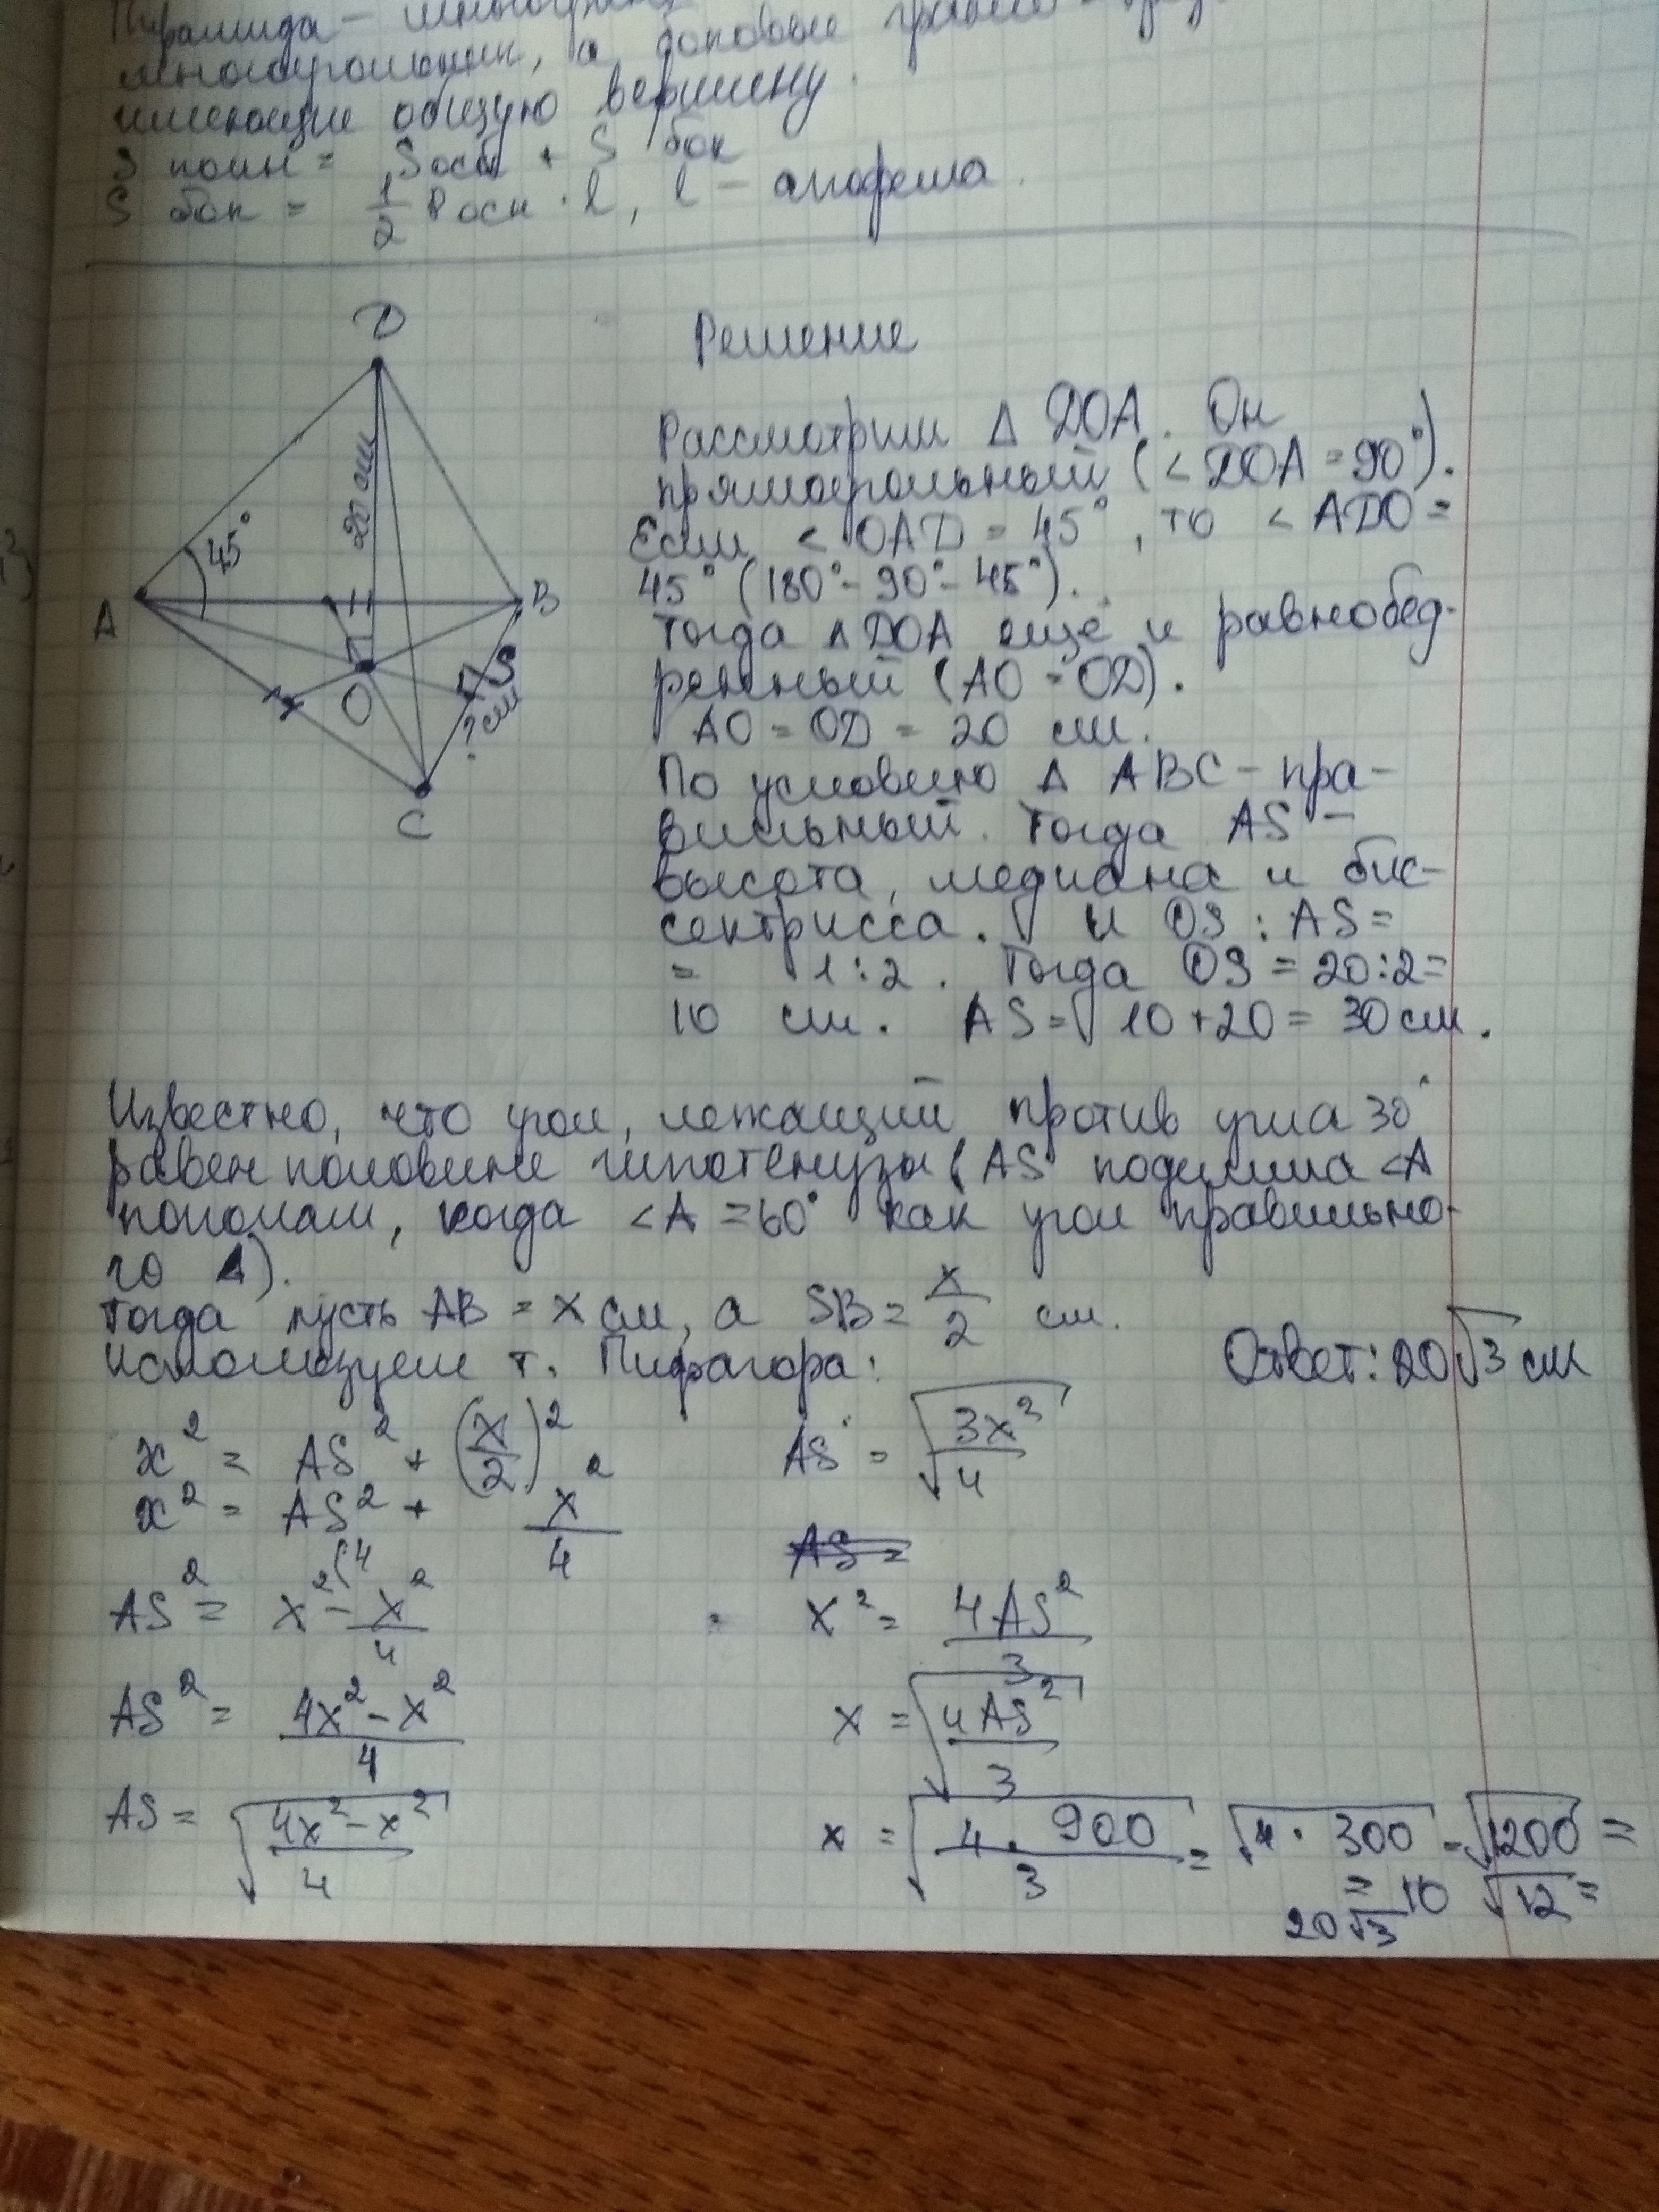 Пирамида –
многоугольник, а боковые грани –
имеющие общую вершину.
S полн = Sосн + S бок
S бок = 1/2 Pосн · l, l – апофема.
D
20 см
45°
A
B
O
S
? см
C
Решение
Рассмотрим Δ DOA. Он
прямоугольный (<DOA = 90°).
Если <OAD = 45°, то <ADO =
45° (180° - 90° - 45°).
Тогда Δ DOA ещё и равнобед-
ренный (AO = OD).
AO = OD = 20 см.
По условию Δ ABC – пра-
вильный. Тогда AS –
высота, медиана и бис-
сектрисса. И OS : AS =
= 1:2. Тогда OS = 20:2=
10 см. AS = 10+20 = 30 см.
Известно, что угол, лежащий против угла 30°
равен половине гипотенузы (AS поделила <A
пополам, когда <A = 60° как угол правильно-
го Δ).
Тогда пусть AB = x см, а SB = x/2 см.
Используем т. Пифагора:
Ответ: 20√3 см
x² = AS² + (x/2)²
x² = AS² + x²/4
AS² = x²(4 - x²/4
AS² = (4x² - x²)/4
AS = √((4x² - x²)/4)
AS = √(3x²/4)
AS =
x² = 4AS²/3
x = √(4AS²/3)
x = √(4 · 900/3) = √(4 · 300) = √1200 =
= 10√12 =
20√3